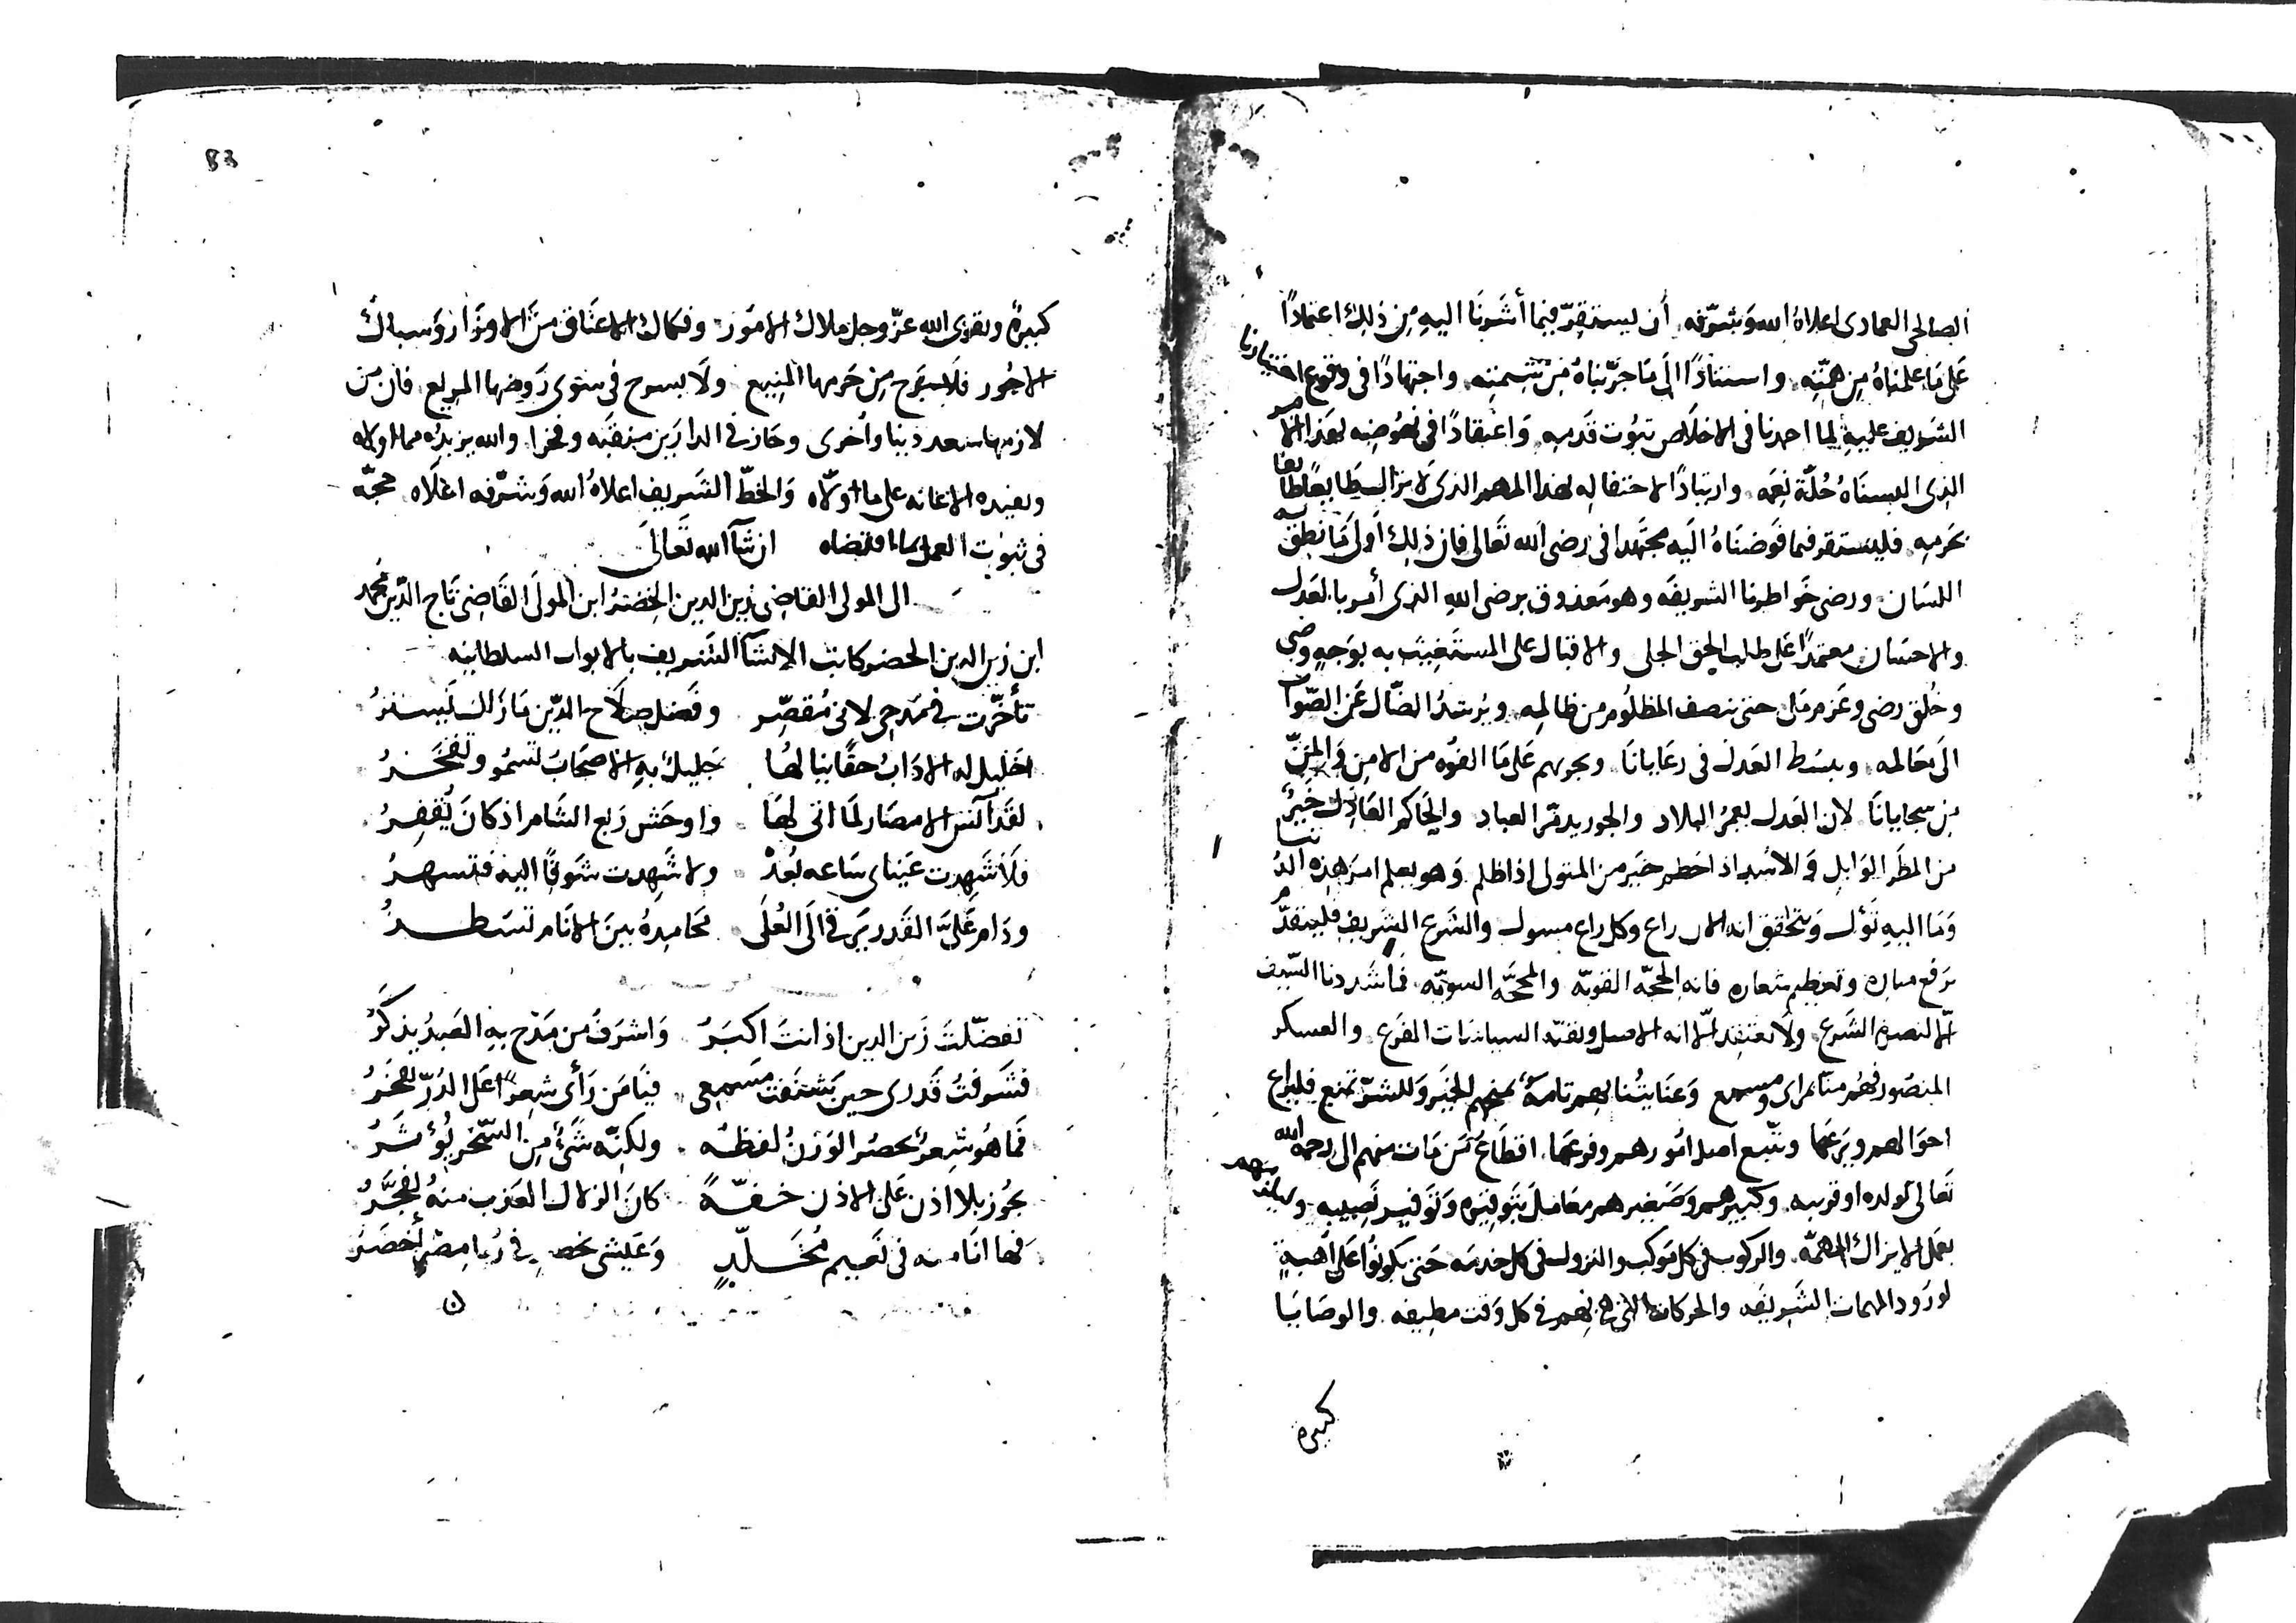 الصالحى العمادى اعلاه الله وشرّفه أن يستقرّ فيما أشرنا اليه من ذلك اعتمادًا
على ما علمناه من همّته واستنادًا الى ما جرّبناه من شيمته واجتهادًا فى وقوع اختيارنا
الشريف عليه لما احمدنا فى الاخلاص ثبوت قدمه واعتقادًا فى نهوضه بهذا الامر
الذى البسناه حُلّة نعمه وارتيادًا لاحتفاله بهذا المهم الذى لا يزال
بحرمه فليستقر فيما فوّضناه اليه مجتهدا فى رضى الله تعالى فان ذلك أولى ما نطق به
اللسان ورضى خواطرنا الشريفه وهو معذوق برضى الله الذى أمر بالعدل
والاحسان معتمدًا على طلب الحق الجلى والاقبال على المستغيث به بوجه وضى
وخُلق رضى وعزم ملى حتى ينصف المظلوم من ظالمه ويُرشد الضّال عن الصّواب
الى معالمه ويبسط العدل فى رعايانا ويجريهم على ما الفوه من الامن والمنّ
من سجايانا لان العدل يعمر البلاد والجور يدمّر العباد والحاكم العادل خير
من المطر الوابل والأسد اذا حطم خير من المتولى اذا ظلم وهو يعلم امر هذه الدنيا
وما اليه تؤل ويتحقق انه الان راع وكل راع مسول والشرع الشريف فليتقدّم
برفع مناره وتعظيم شعاره فانه الحجّه القويّه والمحجّه السويّه فما شددنا السيف
الّا لنصرة الشرع ولا نعتقد الّا انه الاصل وبقيّه السياسات الفرع والعسكر
المنصور فهُم منّا بمرأى ومسمع وعنايتنا بهم تامّة تمنحهم الخير وللشرّ تمنع فليراع
احوالهم ويرعها ويتّبع أصل امورهم وفرعها اقطاع من مات منهم الى رحمه الله
تعالى لولده او قريبه وكبيرهم وصغيرهم معامل بتوقيره وتوفير نصيبه وليلزمهم
بعمل الايزاك المهمّه والركوب فى كل موكب والنزول فى كل خدمه حتى يكونوا على أهبةٍ
لورود المهمات الشريفه والحركات التى هى بهم فى كل وقت مطيفه والوصايا
كثيرة
83
كثيرة وتقوى الله عزّ وجل ملاك الامور وفكاك الاعناق من الاوزار وسباك
الاجور فلا يبرح من حرمها المنيع ولا يسرح فى سوى روضها المريع فان من
لازمها سعد دنيا وأخرى وحاز فى الدارين منقبه وفخرا والله يزيده مما اولاه
ويفيده الاعانه على ما ولّاه والخطّ الشريف اعلاه الله وشرّفه اعلاه حجّه
فى ثبوت العمل بما اقتضاه ان شآ الله تعالى
الى المولى القاضى زين الدين الخضر ابن المولى القاضى تاج الدّين محمد
ابن زين الدين الخضر كاتب الانشآ الشريف بالابواب السلطانيه
تأخّرت فى مدحى لانى مُقصّر وفضل صلاح الدّين ما زال يستر
خليل له الاداب حقًا بنا لها جليل به الاصحاب تسمو وتفخر
لقد آنس الامصار لما اتى لها واوحش ربع الشام اذ كان يُقفِر
فلا شهدت عيناى ساعه بُعد ولا شهدت شوقًا اليه فتسهر
ودام علىّ القدر يرقى الى العُلى محامده بين الانام تسطر
تفضّلتَ زين الدين اذ انتَ اكبر واشرف من مدح به العبد يذكر
فشرّفتُ قدرى حين شنّفت مسمعى فيا من رأى شعرًا على الدُرّ يفخر
فما هو شعر يحصر الوزنُ لفظه ولكنّه شىءٌ من السّحر يؤثر
يجوز بلا اذن على الاذن خفّةً كان الزلال العذب منه يُفجّر
فها انا منه فى نعيم مُخلّدٍ وعيشى خصب فى رُبا مصر أخضر